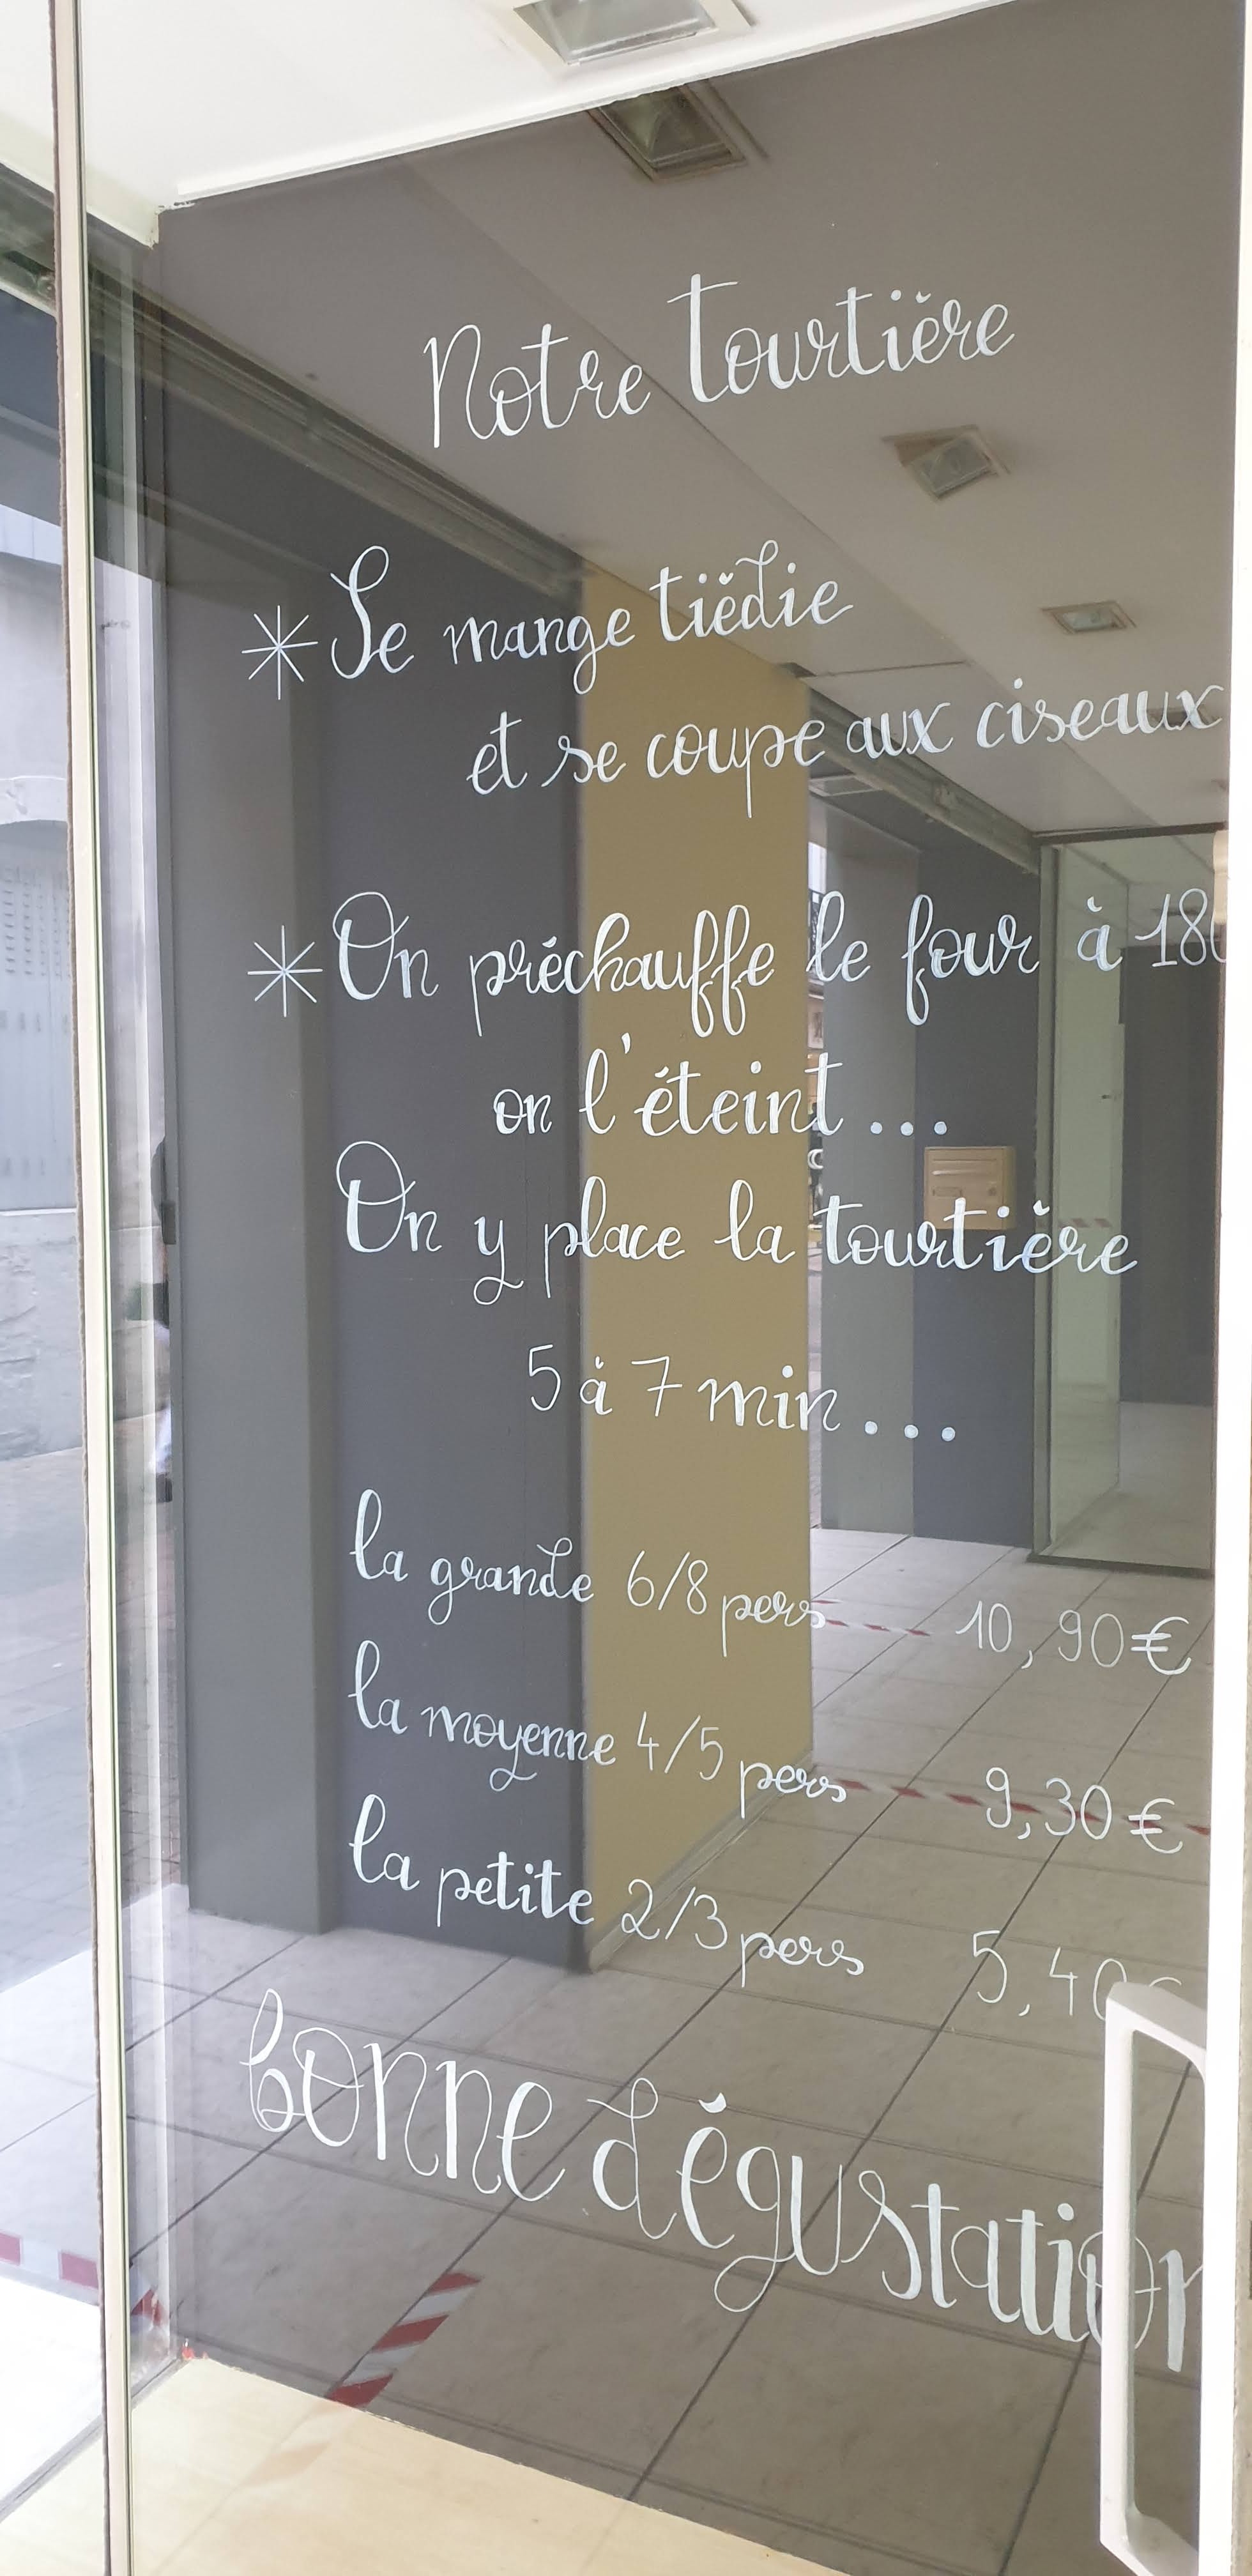 Notre Tourtière
* Se mange tiëdie
et se coupe aux ciseaux
* On préchauffe le four à 180
on l'éteint...
On y place la tourtière
5 à 7 min...
la grande 6/8 pers 10,90€
la moyenne 4/5 pers 9,30€
la petite 2/3 pers 5,40€
bonne dégustation